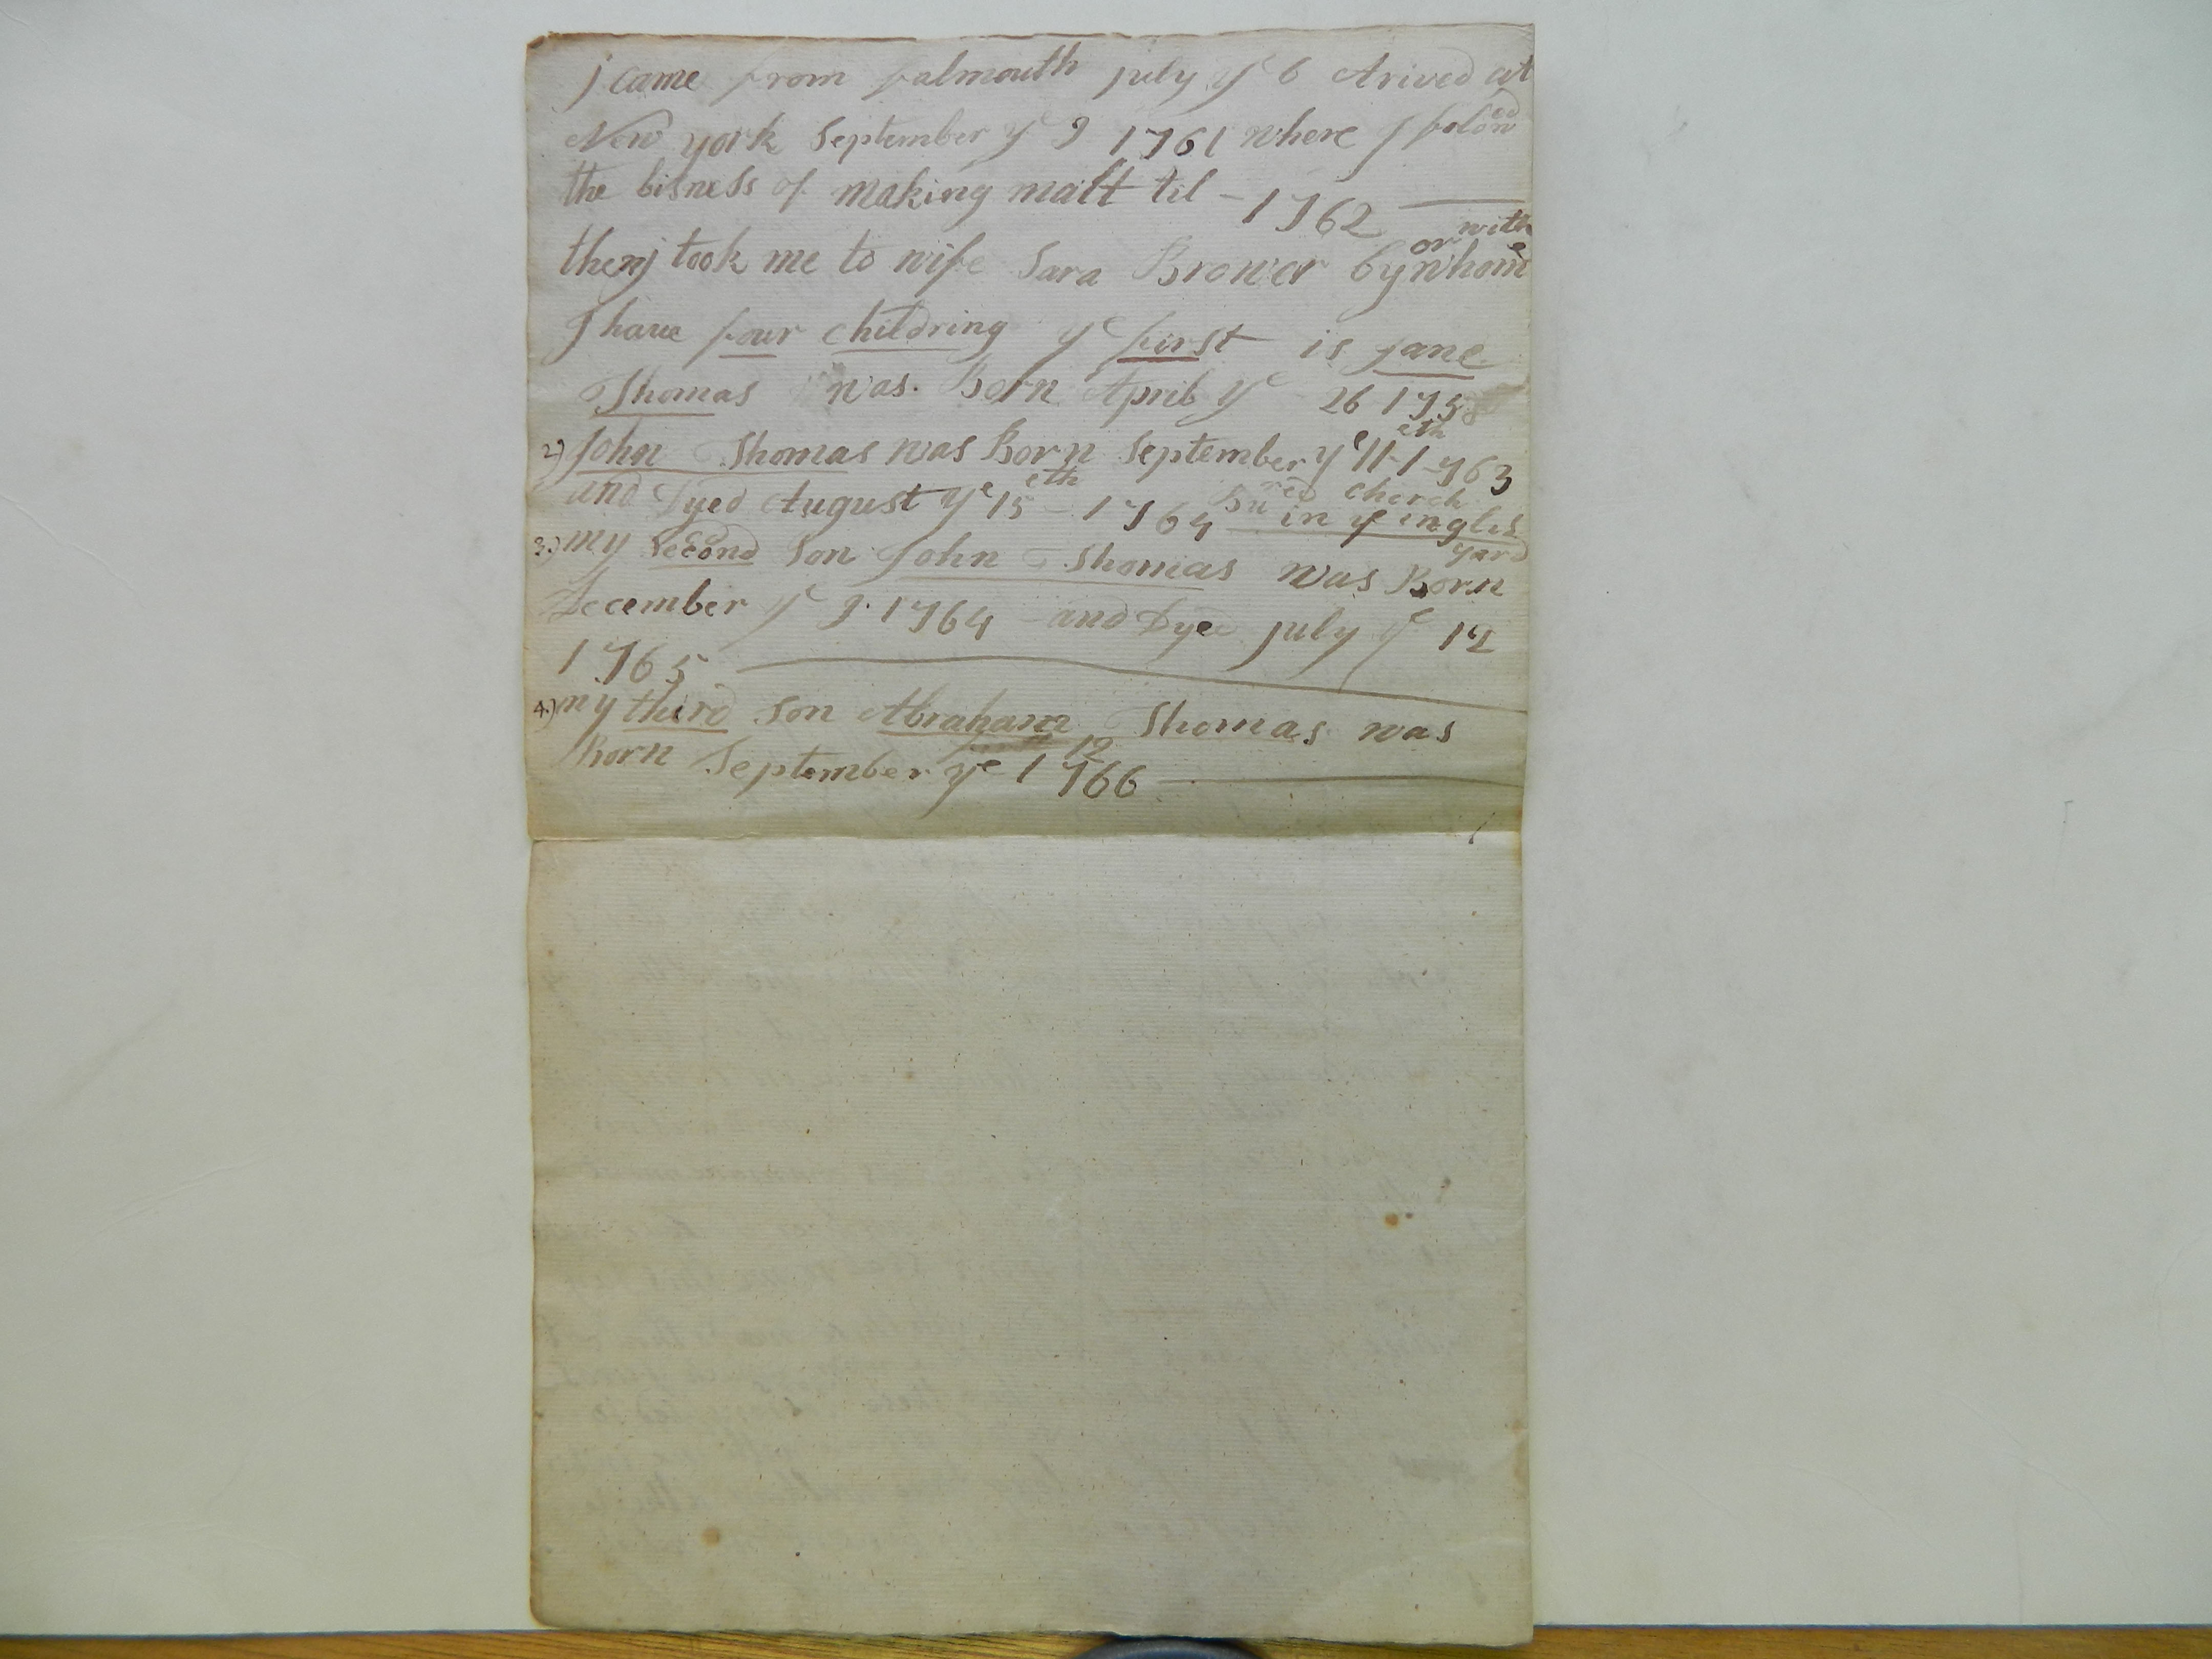 j came from falmouth july ye 6 Arived at
New york September ye 9 1761 where j folowed
the bisness of making malt til - 1762
then j took me to wife Sara Brower by or with whome
I have four childring ye first is jane
Thomas was Born April ye 26 1758
2) john Thomas was Born September ye 11eth 1763
and Dyed August ye 15eth - 1764 Bured in ye inglis cherch yard
3.) my second son john Thomas was Born
December ye 9 1764 and Dyed july ye 12
1765
4.) my third son Abraham Thomas was
Born September ye 12 1766